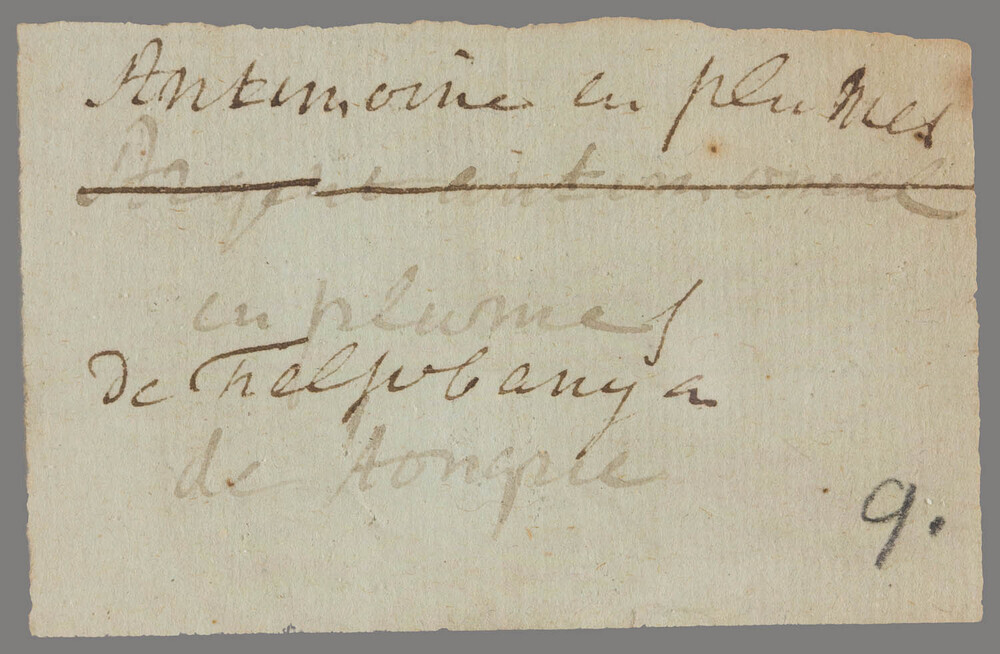 Antimoine en plumes
Argent antimonial
en plumes
De Felsobanya
de hongrie
9.